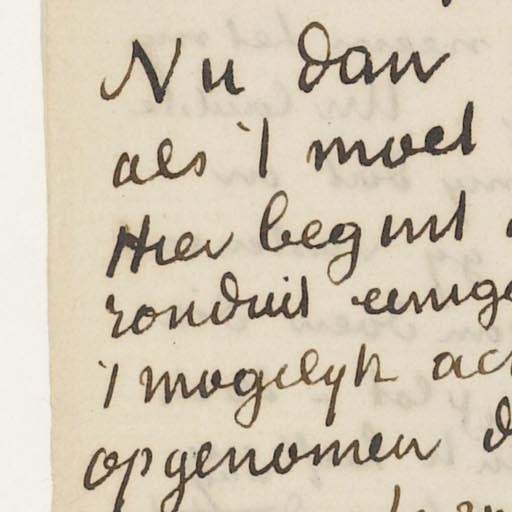 Nu dan
als 't moet
Hier begint
ronduit eenige
't mogelyk ach
opgenomen d